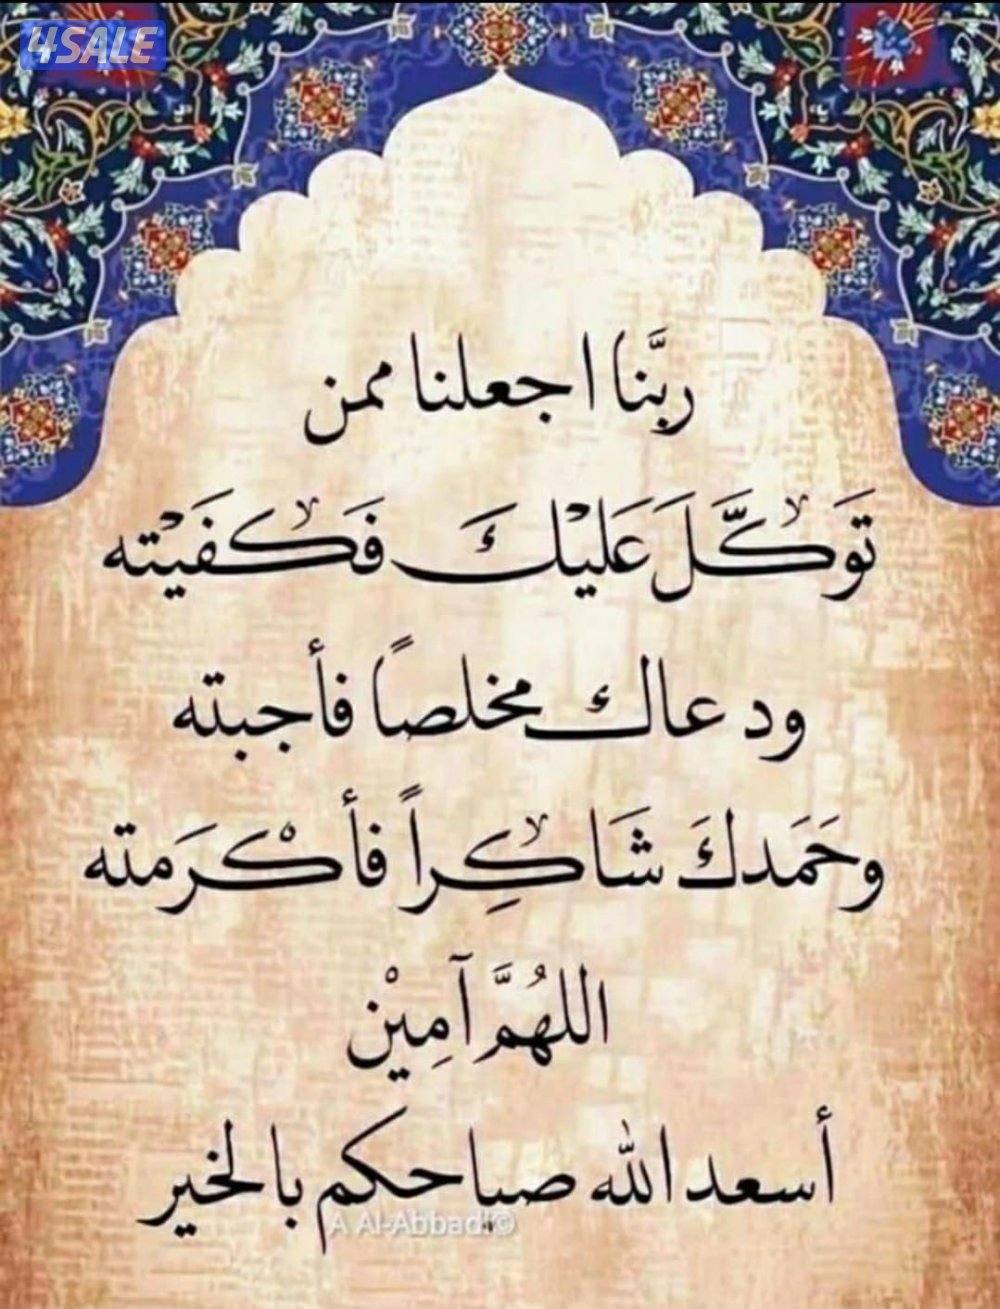 4SALE
ربَّنا اجعلنا ممن
تَوَكَّلَ عَلَيْكَ فَكَفَيْته
ودعاك مخلصاً فأجبته
وحَمَدكَ شَاكِراً فأكْرَمته
اللهُمَّ آمِيْن
أسعد الله صباحكم بالخير
A Al-Abbadi©